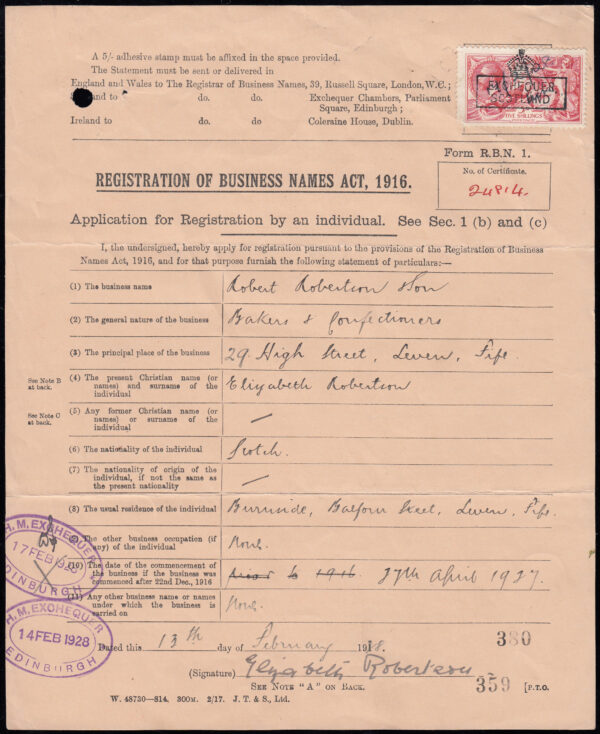 A 5/- adhesive stamp must be affixed in the space provided.
The Statement must be sent or delivered in
England and Wales to The Registrar of Business Names, 39, Russell Square, London, W.C.;
land to do. do. Exchequer Chambers, Parliament
Square, Edinburgh;
Ireland to do. do Coleraine House, Dublin.
EXCHEQUER
SCOTLAND
FIVE SHILLINGS
Form R.B.N. 1.
No. of Certificate.
24814.
REGISTRATION OF BUSINESS NAMES ACT, 1916.
Application for Registration by an individual. See Sec. 1 (b) and (c)
I, the undersigned, hereby apply for registration pursuant to the provisions of the Registration of Business
Names Act, 1916, and for that purpose furnish the following statement of particulars:—
(1) The business name Robert Robertson & Son
(2) The general nature of the business Bakers & Confectioners
(3) The principal place of the business 29 High Street, Leven, Fife.
See Note B
at back.
(4) The present Christian name (or
names) and surname of the
individual
Elizabeth Robertson
See Note C
at back.
(5) Any former Christian name (or
names) or surname of the
individual
—
(6) The nationality of the individual Scotch.
(7) The nationality of origin of the
individual, if not the same as
the present nationality
—
(8) The usual residence of the individual Burnside, Balfour Street, Leven, Fife.
(9) The other business occupation (if
any) of the individual
None.
(10) The date of the commencement
of the business if the business was
commenced after 22nd Dec., 1916
to 1916. 27th April 1927.
(11) Any other business name or names
under which the business is
carried on
None.
H.M. EXCHEQUER
17 FEB 1928
EDINBURGH
H.M. EXCHEQUER
14 FEB 1928
EDINBURGH
Dated this 13th day of February 1928.
380
(Signature) Elizabeth Robertson
See Note "A" on Back.
359
[P.T.O.
W. 48730—814. 300M. 2/17. J. T. & S., Ltd.